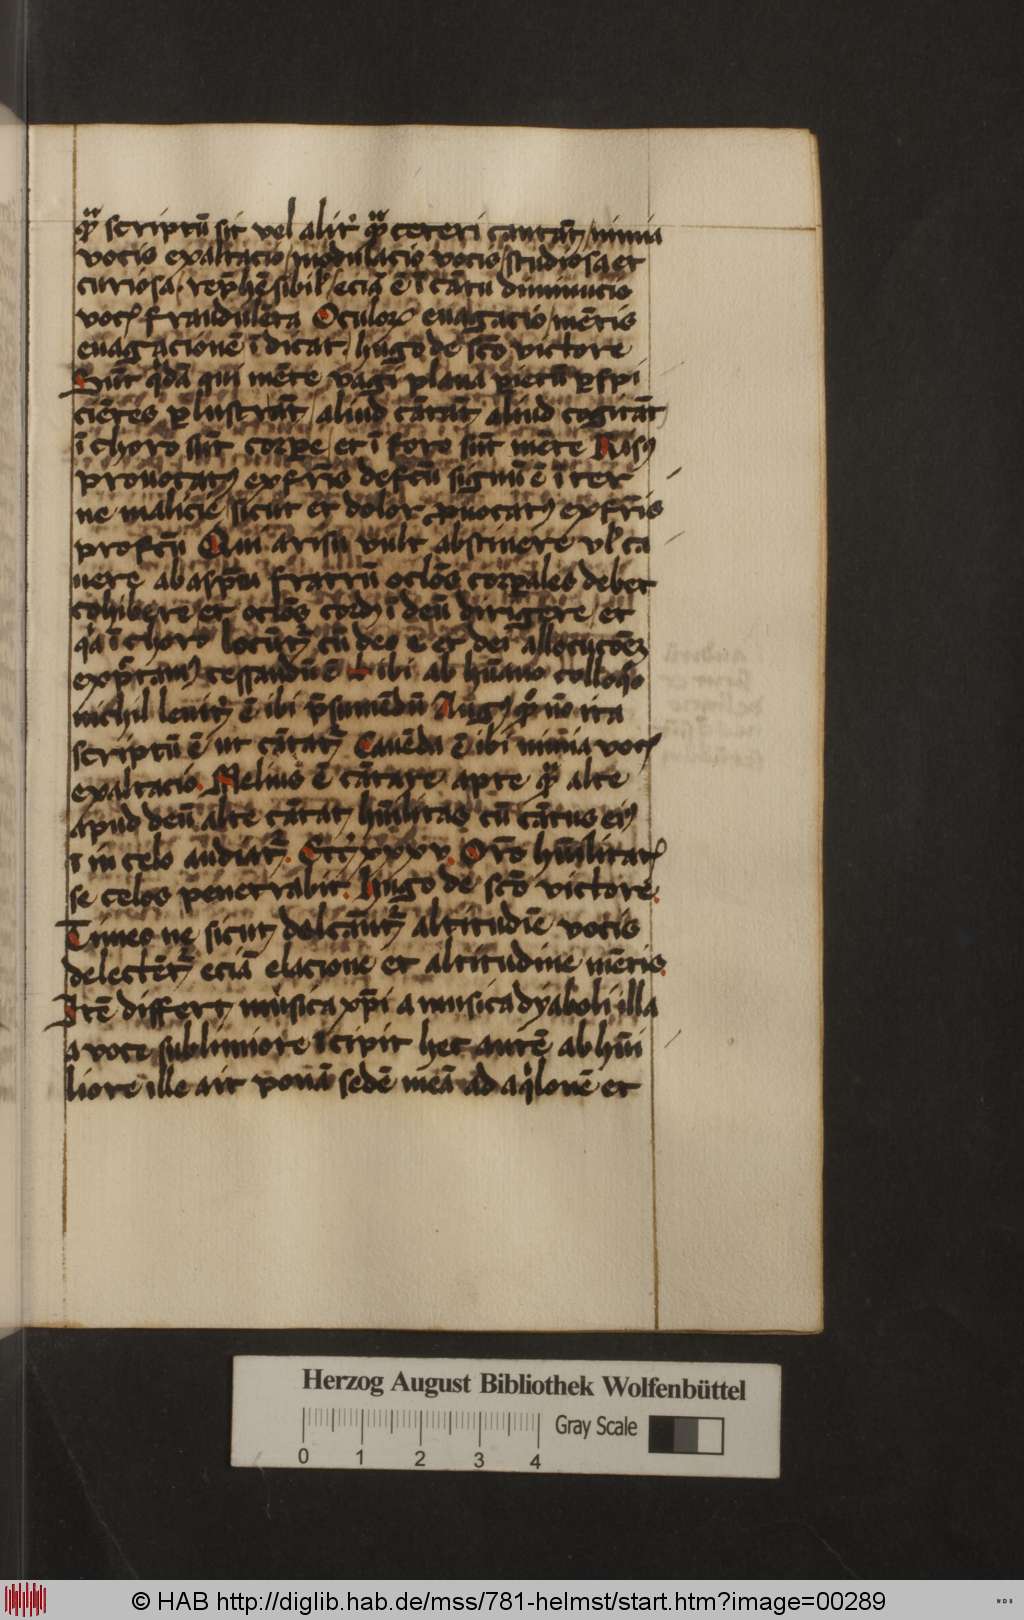 qͣ scriptū sit vel alit̉ qͣ ceteri cantāt / nimia
vocis exaltacio / modulacio vocis / studiosa et
curiosa / rep̄hēsibil̓ / eciā ē ī cātu diminucio
vocꝭ fraudulēta Oculoꝝ euagacio / mētis
euagacionē īdicat / hugo de scō victore
Sūt q̓dā qui mēte vagi
ciētes ꝑlustrāt / aliud cātāt aliud cogitāt
ī choro sūt corꝑe / et ī foro sūt mēte Risꝰ
prouocatꝰ ex fr̄is defctū signū ē īter
ne malicie / sicut et dolor ꝓuocatꝰ ex fr̄is
profctū Qui a risu vult abstinere vl̓ ca
uere ab aspc̄u fratrū oclōs corꝑales debet
cohibere / et oclōs cordꝭ ī deū dirigere / et
q̓a ī choro cū deo et dei
cessandū ē ibi ab hūano colloq̓o
nichil leuitꝭ ē ibi p̄sumēdū Augꝰ ita
scriptū ē ut cātat᷑ Cauēda ē ibi nimia vocꝭ
exaltacio. Melius ē cātare apte qͣ alte
apud deū alte cātat hūilitas cū cātus eiꝰ
ī in celo audiat᷑. Ecc̄ xxxv. Orō hūilitatꝭ
se celos penetrabit. hugo de scō victore.
Timeo ne sicut altitudīe vocis
delectēt᷑ eciā elacione et altitudine mētis.
Itē differt musica xp̄i a musica dyaboli illa
a voce sublimiore īcipit hec autē ab hūi
liore ille ait ponā sedē meā ad aq̓lonē et
Herzog August Bibliothek Wolfenbüttel
Gray Scale
0 1 2 3 4
© HAB http://diglib.hab.de/mss/781-helmst/start.htm?image=00289